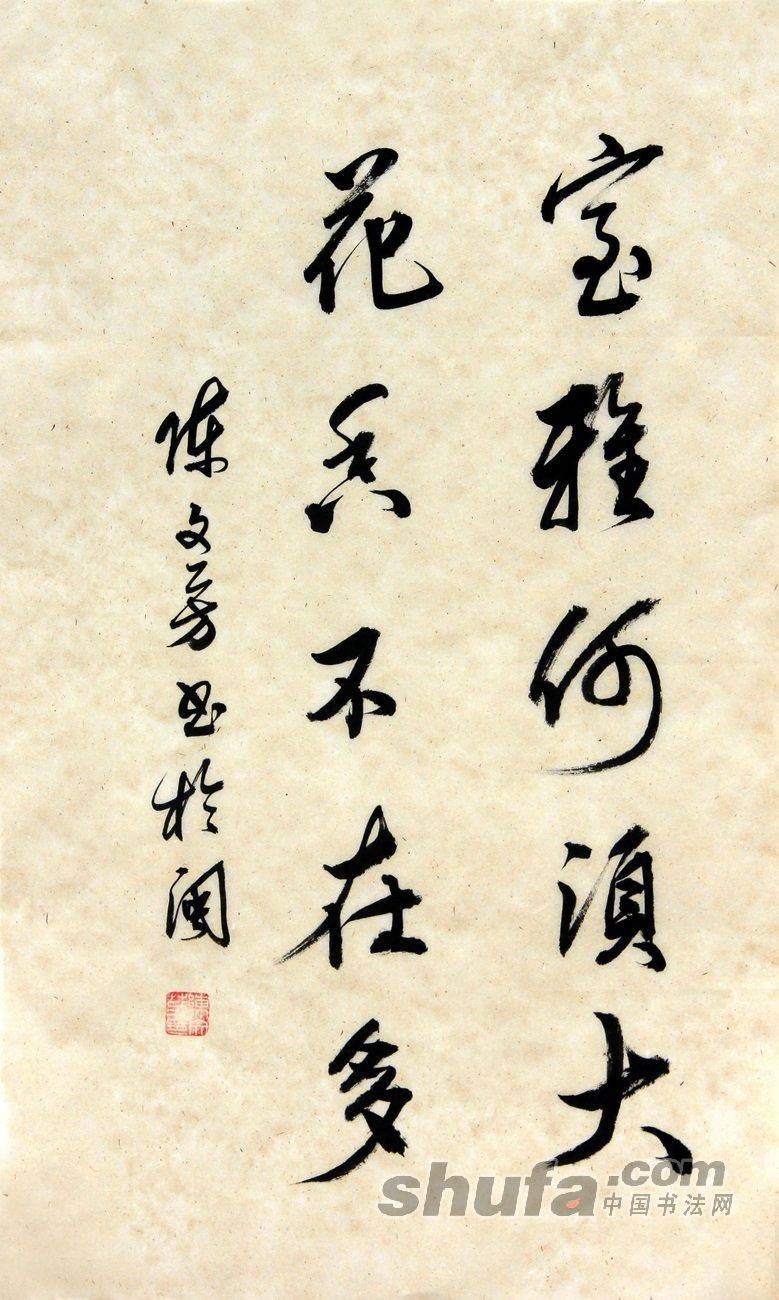 室雅何須大
花香不在多
陳文芳书於闽
shufa.com
中国书法网